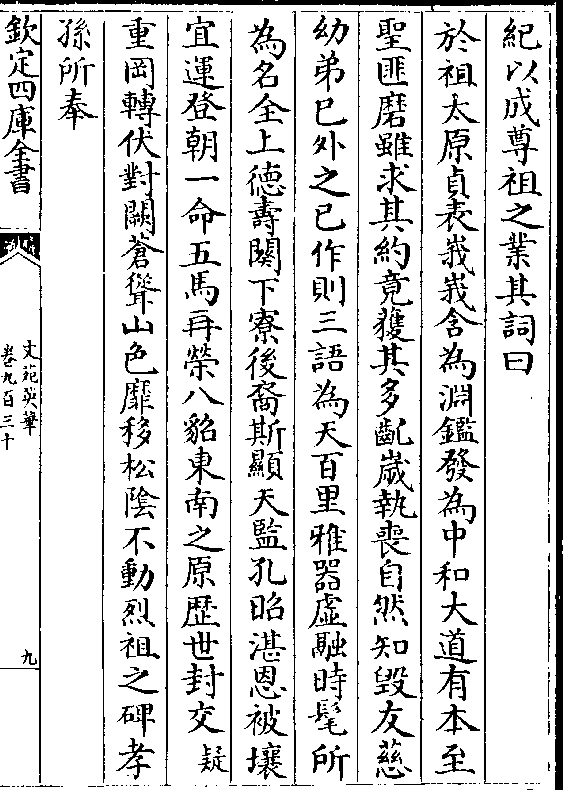 紀以成尊祖之業其詞曰
於祖太原貞表峩峩含為淵鑑發為中和大道有本至
聖匪磨雖求其約竟獲其多齓嵗執喪自然知毀友慈
幼弟已外之已作則三語為天百里雅器虛融時髦所
為名全上德壽闋下寮後裔斯顯天監孔昭湛恩被壤
宜運登朝一命五馬再榮八貂東南之原歴世封交疑
重岡轉伏對闕蒼聳山色靡移松陰不動烈祖之碑孝
孫所奉
欽定四庫全書
文苑英華
卷九百三十
九